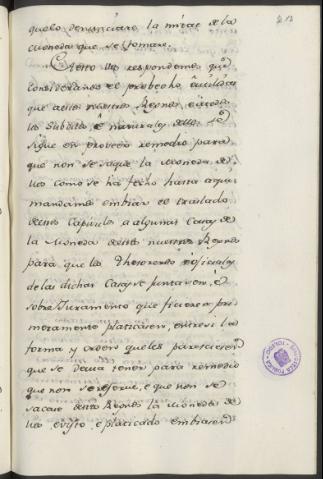 212
quelo denunciare la mitad de la
moneda que se tomare.
A esto vos respondemos que
considerando el probecho è utilidad
que a estos nuestros Reynos è a todos
los Subditos è naturales dellos se
sigue en proveer remedio para
que non se saque la moneda de
llos como se ha fecho hasta aqui
mandamos embiar el traslado
deste Capitulo a algunas Casas de
la Moneda destos nuestros Reynos
para que los Thesoreros è oficiales
de las dichas Casas se juntasen, è
sobre Juramento que ficiesen pri
meramente platicasen, entre si la
forma y orden que les paresciesen
que se devia tener para remedio
que non se
sacase destos Reynos la moneda de
llos, e visto, e platicado embiasen